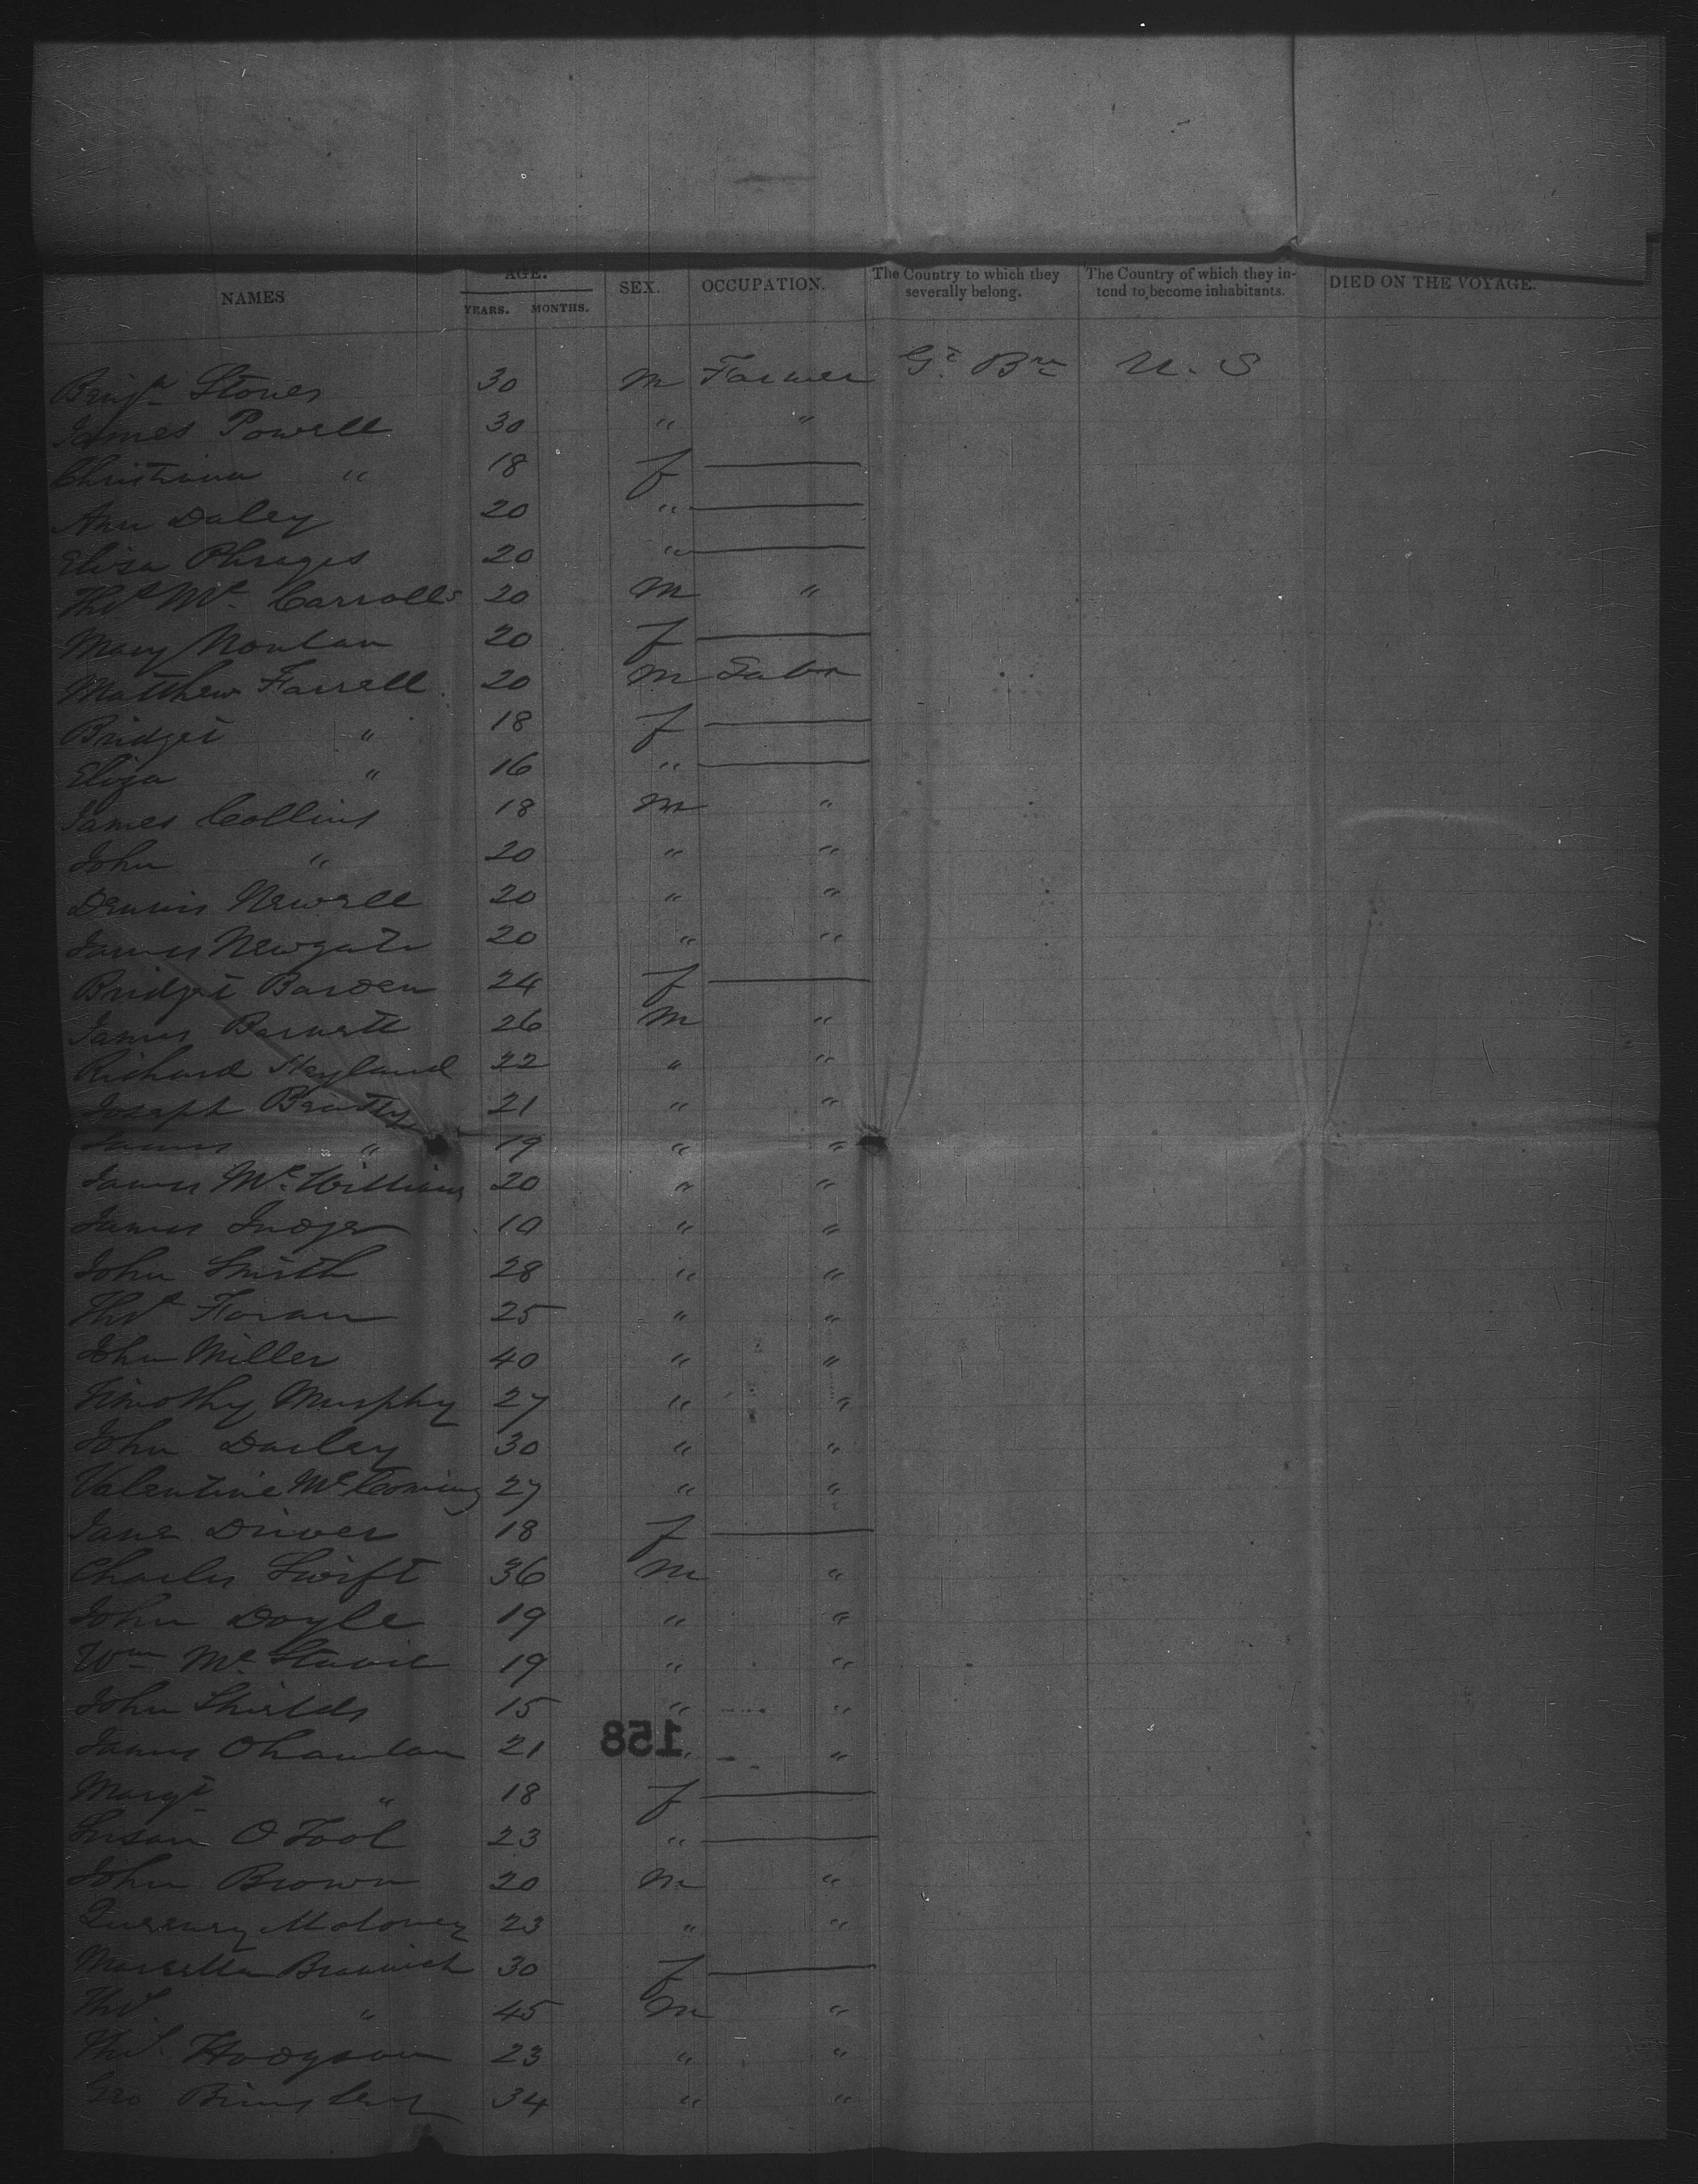 NAMES AGE. YEARS. MONTHS. SEX. OCCUPATION. The Country to which they severally belong. The Country of which they intend to become inhabitants. DIED ON THE VOYAGE.
Benjn Stones 30 M Farmer Gt Brn U. S
James Powell 30 " "
Christiana " 18 f
Ann Daley 20 "
Eliza 20 "
Thos Mc Carrolls 20 M "
Mary Nowlan 20 f
Matthew Farrell 20 M Labr
Bridget " 18 f
Eliza " 16 "
James Collins 18 M "
John " 20 " "
Dennis Newell 20 " "
James Newgate 20 " "
Bridget Barden 24 f
James Barnett 26 M "
Richard Heyland 22 " "
Joseph Beatty 21 " "
James " 19 " "
James Mc Williams 20 " "
James 10 " "
John Smith 28 " "
Thos Horan 25 " "
John Miller 40 " "
Timothy Murphy 27 " "
John Darley 30 " "
Valentine Mc Coming 27 " "
Jane Driver 18 f
Charles Swift 36 M "
John Doyle 19 " "
Wm Mc 19 " "
John Shields 15 " "
James Ohanlan 21 " "
158
Margt " 18 f
Susan O Tool 23 "
John Brown 20 M "
Moloney 23 " "
Marsella 30 f
Thos " 45 M "
Thos Hodgson 23 " "
Geo 34 " "